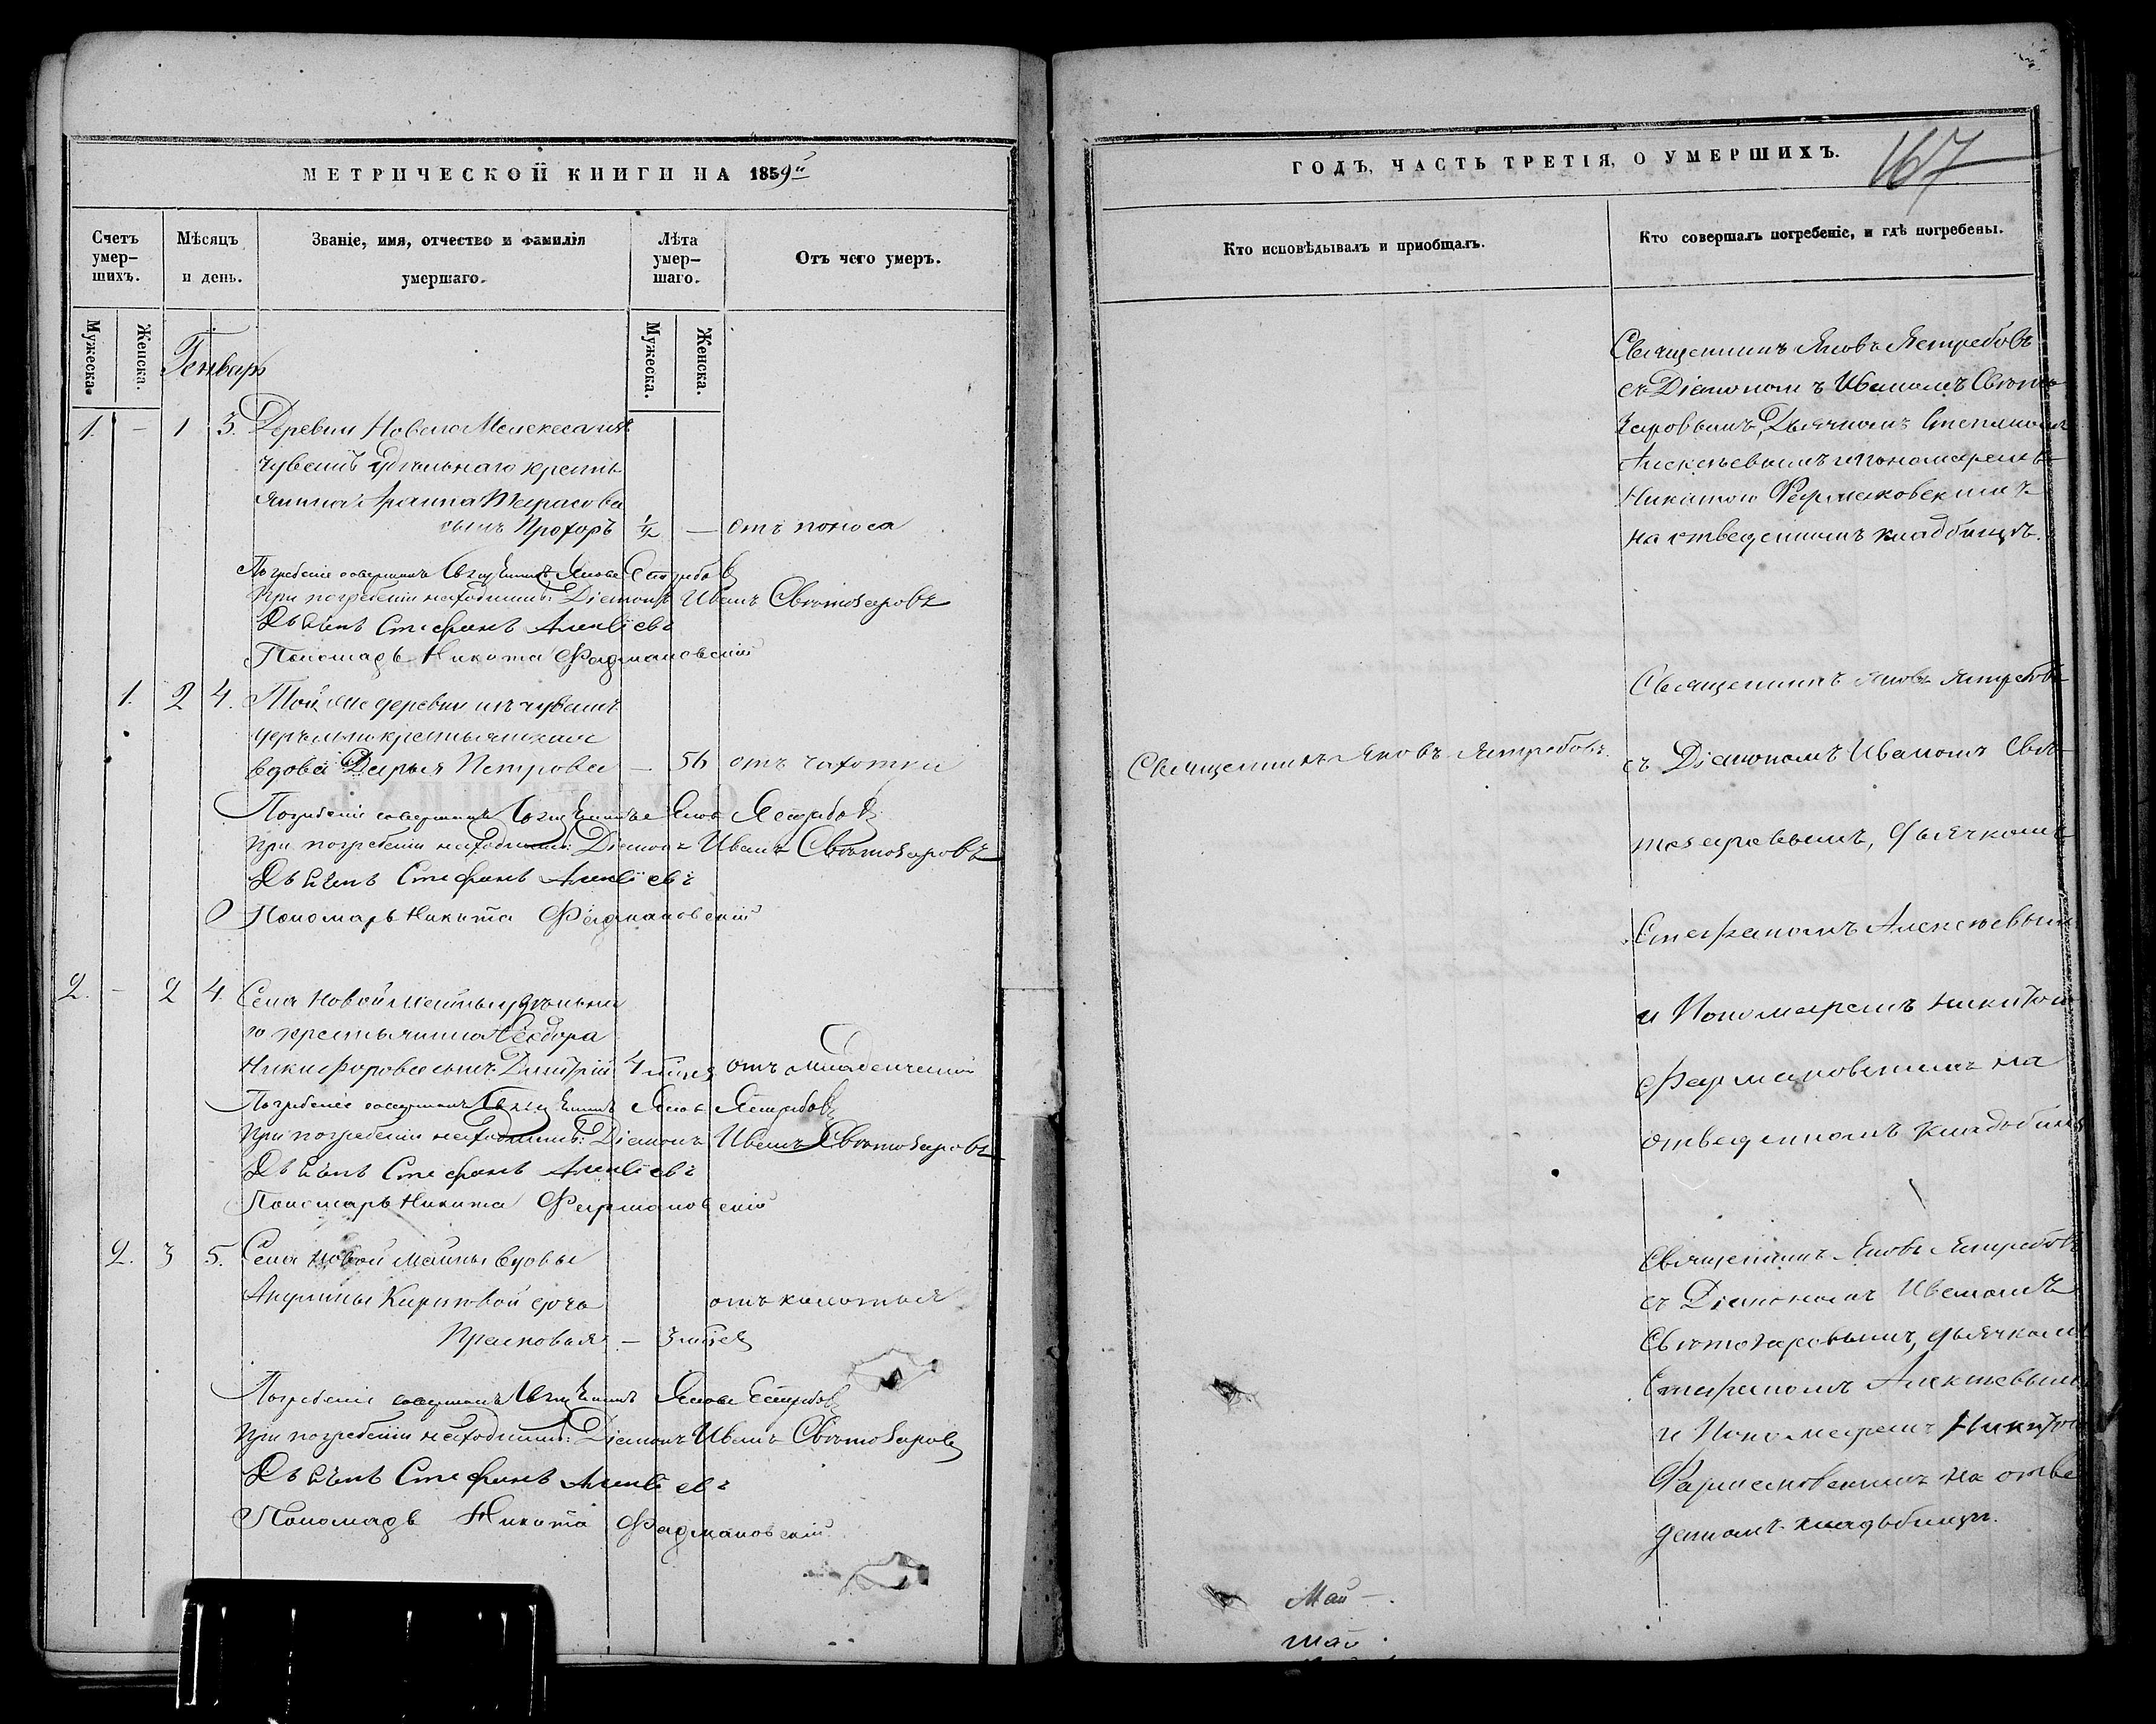 МЕТРИЧЕСКОЙ КНИГИ НА 1859й
Счетъ умер-шихъ.
Мѣсяцъ и день.
Званіе, имя, отчество и фамилія умершаго.
Лѣта умер-шаго.
Отъ чего умеръ.
Мужеска.
Женска.
Мужеска.
Женска.
Генварь
1. — 1 3. Деревни Новаго Мелекеса изъ
чувашъ удѣльнаго кресть
янина Тарасова
сынъ Прохоръ 1/2 — отъ поноса
Погребеніе совершалъ Священникъ Яковъ Ястребовъ
При погребеніи находились: Діаконъ Иванъ Святозаровъ
Дьячекъ Стефанъ Алексѣевъ
Пономарь Никита Фармаковскій
1. 2 4. Той же деревни изъ чувашъ
удѣльнокрестьянская
вдова Дарья Петрова — 56 отъ чахотки
Погребеніе совершалъ Священникъ Яковъ Ястребовъ
При погребеніи находились: Діаконъ Иванъ Святозаровъ
Дьячекъ Стефанъ Алексѣевъ
Пономарь Никита Фармаковскій
2. — 2 4. Села Новой Майны удѣльна
го крестьянина Ѳеодора
Никифорова сынъ Димитрій 4 мѣсяц отъ младенческой
Погребеніе совершалъ Священникъ Яковъ Ястребовъ
При погребеніи находились: Діаконъ Иванъ Святозаровъ
Дьячекъ Стефанъ Алексѣевъ
Пономарь Никита Фармаковскій
2. 3 5. Села Новой Майны вдовы
Акулины Кириловой дочь отъ колотья
Прасковья — 3 мѣсяц
Погребеніе совершалъ Священникъ Яковъ Ястребовъ
При погребеніи находились: Діаконъ Иванъ Святозаровъ
Дьячекъ Стефанъ Алексѣевъ
Пономарь Никита Фармаковскій
ГОДЪ, ЧАСТЬ ТРЕТІЯ, О УМЕРШИХЪ.
167
Кто исповѣдывалъ и пріобщалъ.
Кто совершалъ погребеніе, и гдѣ погребены.
Священникъ Яковъ Ястребовъ
съ Діакономъ Иваномъ Свято
заровымъ, Дьячкомъ Степаномъ
Алексѣевымъ и пономаремъ
Никитою Фармаковскимъ
на отведенномъ кладбищѣ.
Священникъ Яковъ Ястребовъ.
Священникъ Яковъ Ястребовъ
съ Діакономъ Иваномъ Свя-
тозаровымъ, дьячкомъ
Стефаномъ Алексѣевымъ
и Пономаремъ Никитою
Фармаковскимъ на
отведенномъ кладбищѣ
Священникъ Яковъ Ястребовъ
съ Діакономъ Иваномъ
Святозаровымъ, дьячкомъ
Стефаномъ Алексѣевымъ
и Пономаремъ Никитою
Фармаковскимъ на отве
денномъ кладбищѣ.
Май —.
Май